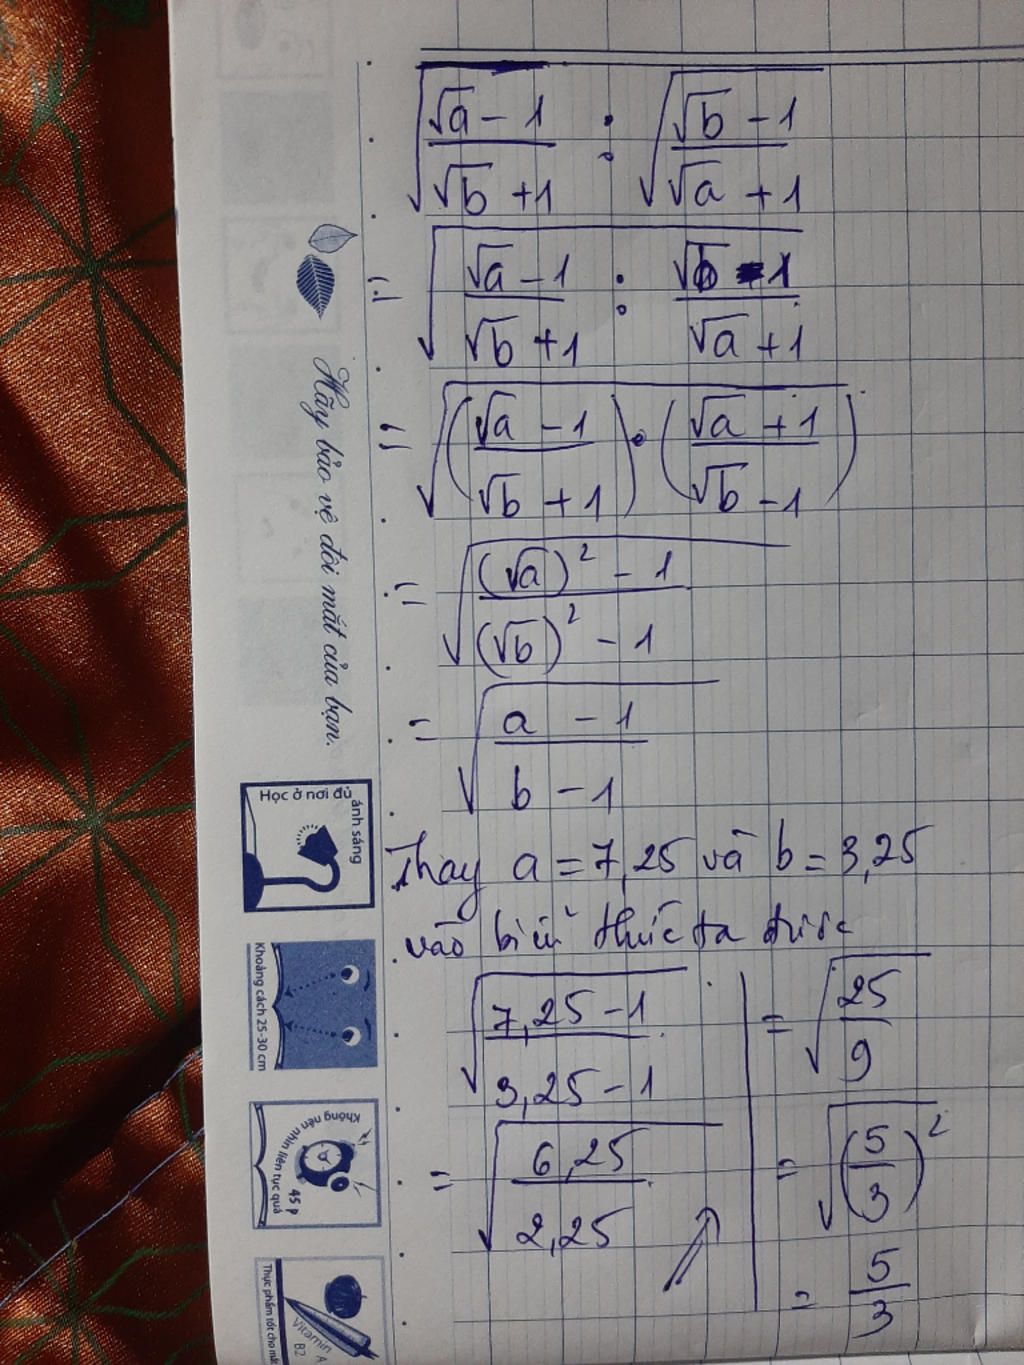 √((√a - 1)/(√b + 1)) : √((√b - 1)/(√a + 1))
= √((√a - 1)/(√b + 1) : (√b - 1)/(√a + 1))
= √(((√a - 1)/(√b + 1)) · ((√a + 1)/(√b - 1)))
= √(((√a)² - 1)/((√b)² - 1))
= √((a - 1)/(b - 1))
Thay a = 7,25 và b = 3,25
vào biểu thức ta được
√((7,25 - 1)/(3,25 - 1))
= √(6,25/2,25)
= √(25/9)
= √((5/3)²)
= 5/3
Hãy bảo vệ đôi mắt của bạn.
Học ở nơi đủ
ánh sáng
Khoảng cách 25-30 cm
Không nên nhìn liên tục quá
45 p
Thực phẩm tốt cho mắt
Vitamin A
B2